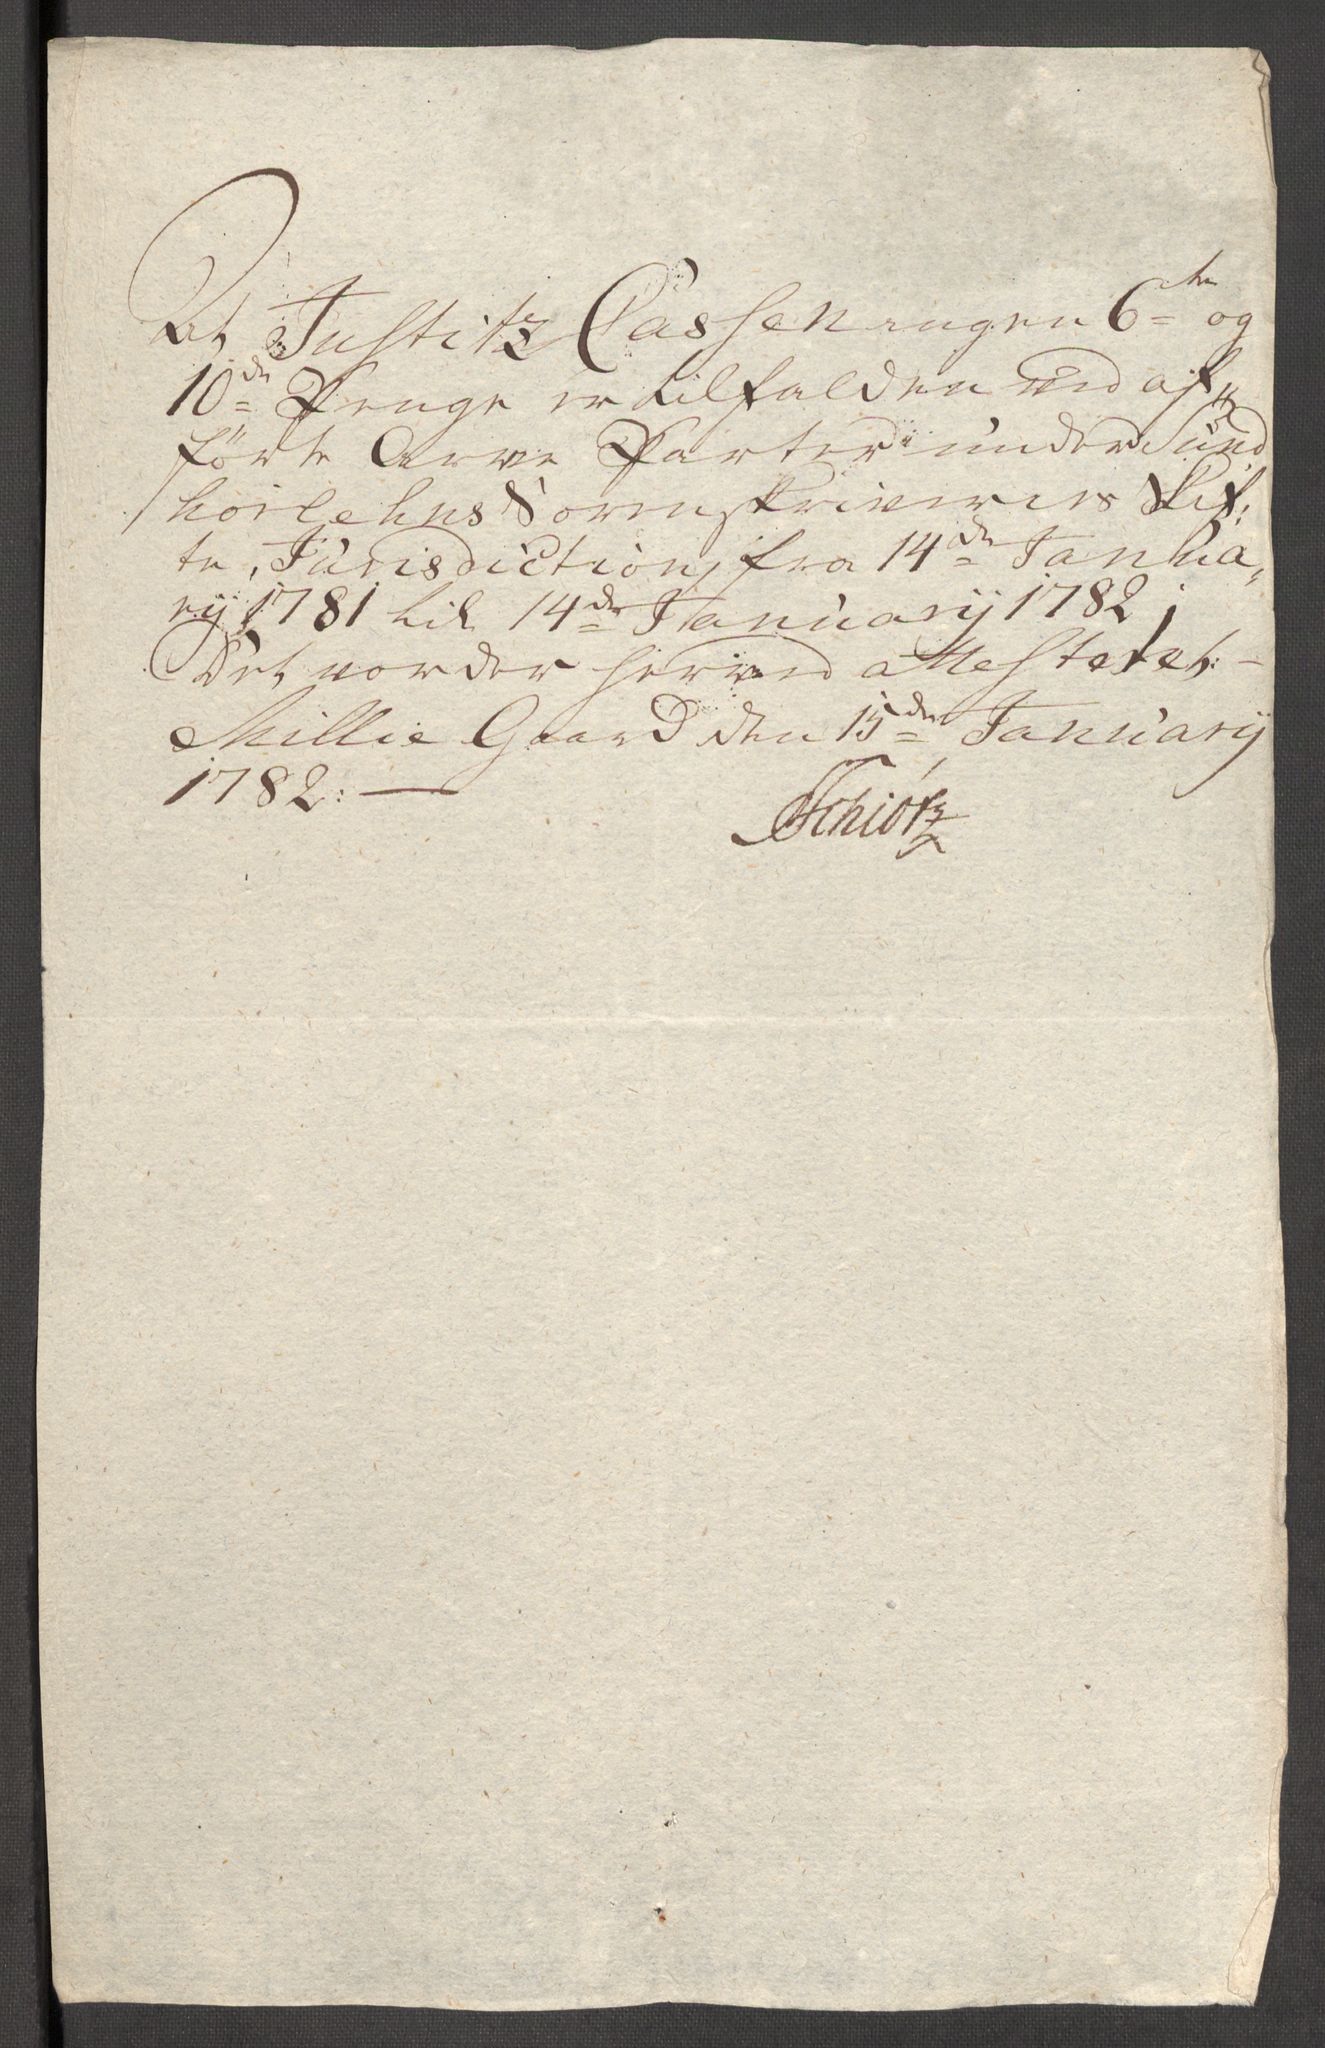 At Justitz Cassen ingen 6te og
10de Penge er tilfalden ved af„
førte Arve Parter under Sund
horlehns Sorenskriveries Skif:
te, Jurisdiction, fra 14de Janua„
rij 1781 til 14de Januarij 1782;
Det vorder herved attesteret:
Millie Gaard den 15de Januarij
1782:
Schiötz